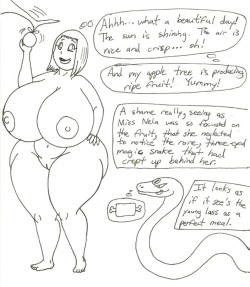 Ahhh... what a beautiful day!
The sun is shining. The air is
nice and crisp... oh!
And my apple tree is producing
ripe fruit! Yummy!
A shame really, seeing as
Miss Nela was so focused
on the fruit, that she neglected
to notice the rare, three-eyed
magic snake that had
crept up behind her.
It looks as
if it see's the
young lass as
a perfect meal.